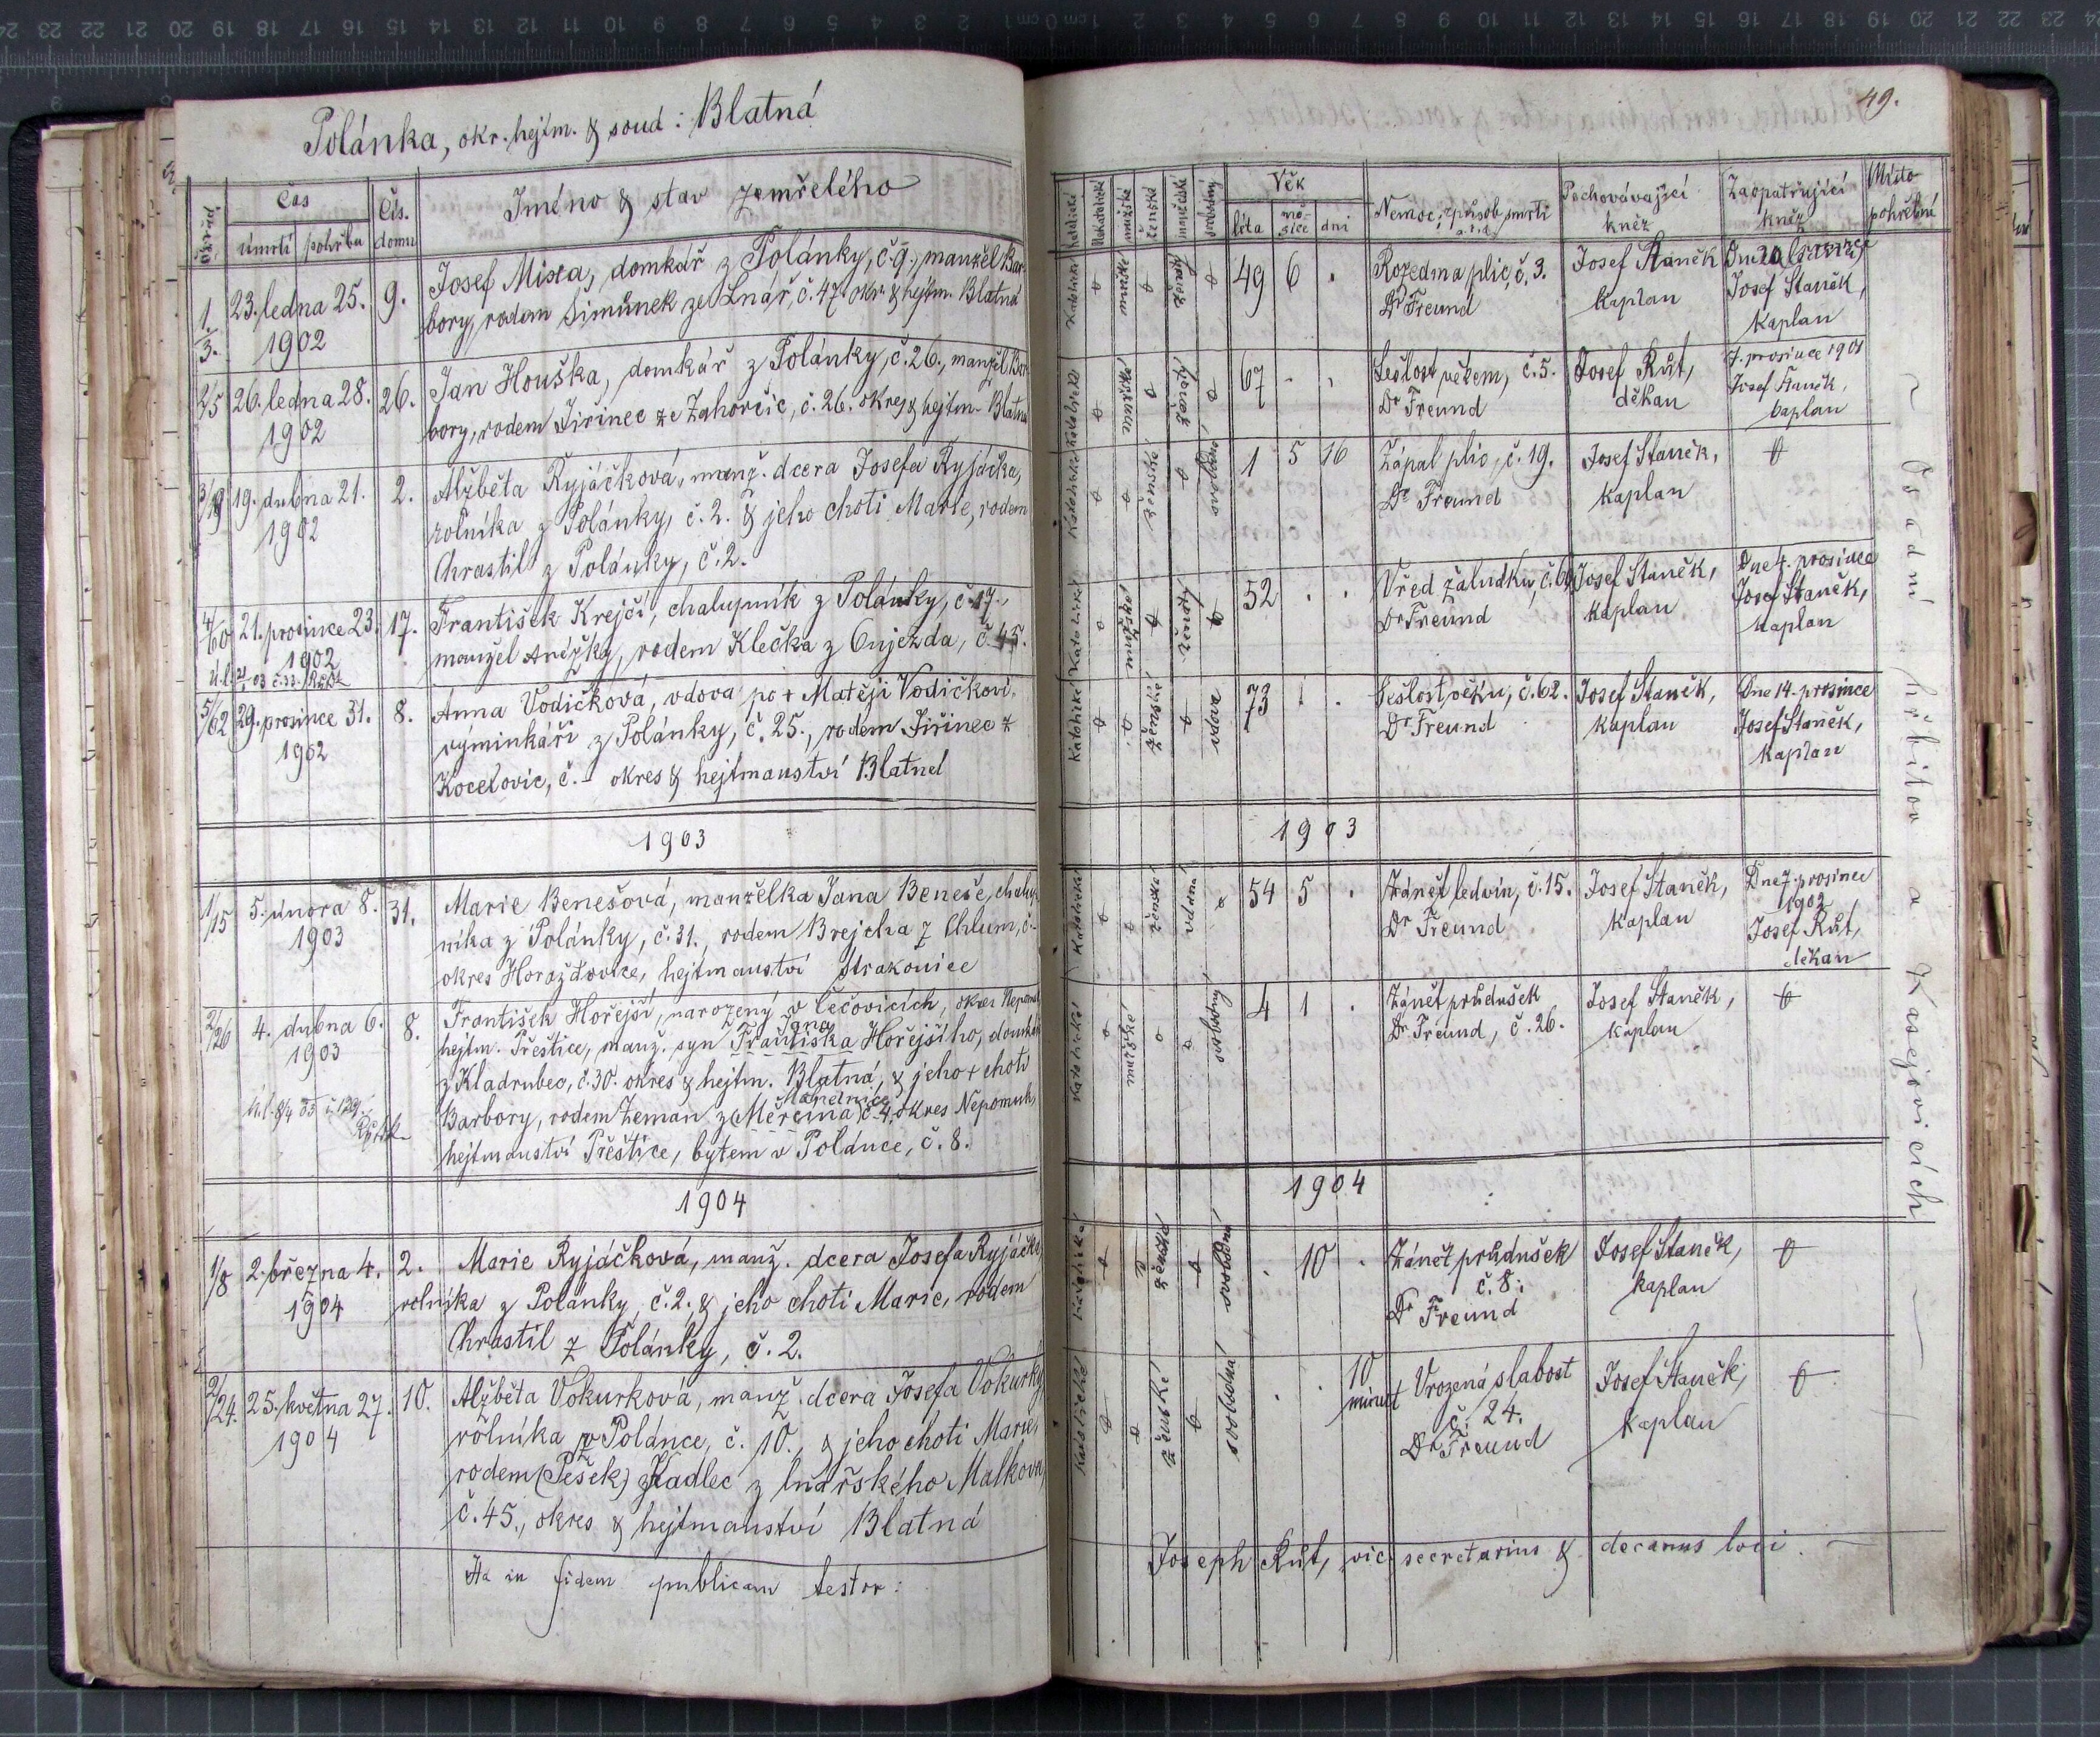 Polánka, okr. hejtm. & soud: Blatná
Čas
úmrtí pohřbu
Čís. domu
Jméno & stav zemřelého
1./3.
23. ledna 25.
1902
9.
Josef Mixa, domkář z Polánky, č. 9., manžel Bar-
bory, rodem Šimůnek ze Lnář, č. 47 okr. & hejtm. Blatná
2/5
26. ledna 28.
1902
26.
Jan Houška, domkář z Polánky, č. 26., manžel Bar-
bory, rodem Jiřinec ze Zahorčic, č. 26. okres & hejtm. Blatná
3/19
19. dubna 21.
1902
2.
Alžběta Ryjáčková, manž. dcera Josefa Ryjáčka,
rolníka z Polánky, č. 2. & jeho choti Marie, rodem
Chrastil z Polánky, č. 2.
4/60
21. prosince 23.
1902
17.
František Krejčí, chalupník z Polánky, č. 17.,
manžel Anežky, rodem Klečka z Oujezda, č. 45.
5/62
29. prosince 31.
1902
8.
Anna Vodičková, vdova po + Matěji Vodičkovi,
výminkáři z Polánky, č. 25., rodem Jiřinec z
Kocelovic, č. – okres & hejtmanství Blatná
1903
1/15
5. února 8.
1903
31.
Marie Benešová, manželka Jana Beneše, chalup-
níka z Polánky, č. 31., rodem Brejcha z Chlum, č. –
okres Horažďovice, hejtmanství Strakonice
2/26
4. dubna 6.
1903
8.
František Hořejší, narozený v Čečovicích, okres Nepomuk
hejtm. Přeštice, manž. syn Františka Hořejšího, domkáře
Jana
z Kladrubec, č. 30. okres & hejtm. Blatná, & jeho + choti
Barbory, rodem Zeman z Měrčína č. 4. okres Nepomuk,
hejtmanství Přeštice, bytem v Polánce, č. 8.
1904
1/8
2. března 4.
1904
2.
Marie Ryjáčková, manž. dcera Josefa Ryjáčka,
rolníka z Polánky, č. 2. & jeho choti Marie, rodem
Chrastil z Polánky, č. 2.
2/24.
25. května 27.
1904
10.
Alžběta Vokurková, manž. dcera Josefa Vokurky
rolníka v Polánce, č. 10., & jeho choti Marie,
rodem (Pešek) Kadlec z lnářského Malkova,
č. 45., okres & hejtmanství Blatná
Ita in fidem publicam testor:
49.
katolické
mužské
ženské
manželské
Věk
léta mě-síce dni
Nemoc; způsob smrti
Pochovávající kněz
Zaopatřující kněz
Místo pohřební
49 6 .
Rozedma plic, č. 3.
Dr Freund
Josef Staněk
kaplan
Josef Staněk,
kaplan
67 . .
Sešlost věkem, č. 5.
Dr Freund
Josef Růt,
děkan
7. prosince 1901
Josef Staněk,
kaplan
1 5 16
Zápal plic, č. 19.
Dr Freund
Josef Staněk,
kaplan
52 . .
Vřed žaludku, č. 60
Dr Freund
Josef Staněk,
kaplan
Dne 4. prosince
Josef Staněk,
kaplan
73 . .
Sešlost věku, č. 62.
Dr Freund
Josef Staněk,
kaplan
Dne 14. prosince
Josef Staněk,
kaplan
1903
54 5 .
Zánět ledvin, č. 15.
Dr Freund
Josef Staněk,
kaplan
Dne 7. prosince
1902
Josef Růt,
děkan
4 1 .
Zánět průdušek
Dr Freund, č. 26.
Josef Staněk,
kaplan
1904
. 10 .
Zánět průdušek
č. 8.
Dr Freund
Josef Staněk,
kaplan
. . 10
minut
Vrozená slabost
č. 24.
Dr Freund
Josef Staněk,
kaplan
Osadní hřbitov a Kasejovicích
Joseph Růt, vic. secretarius & decanus loci.